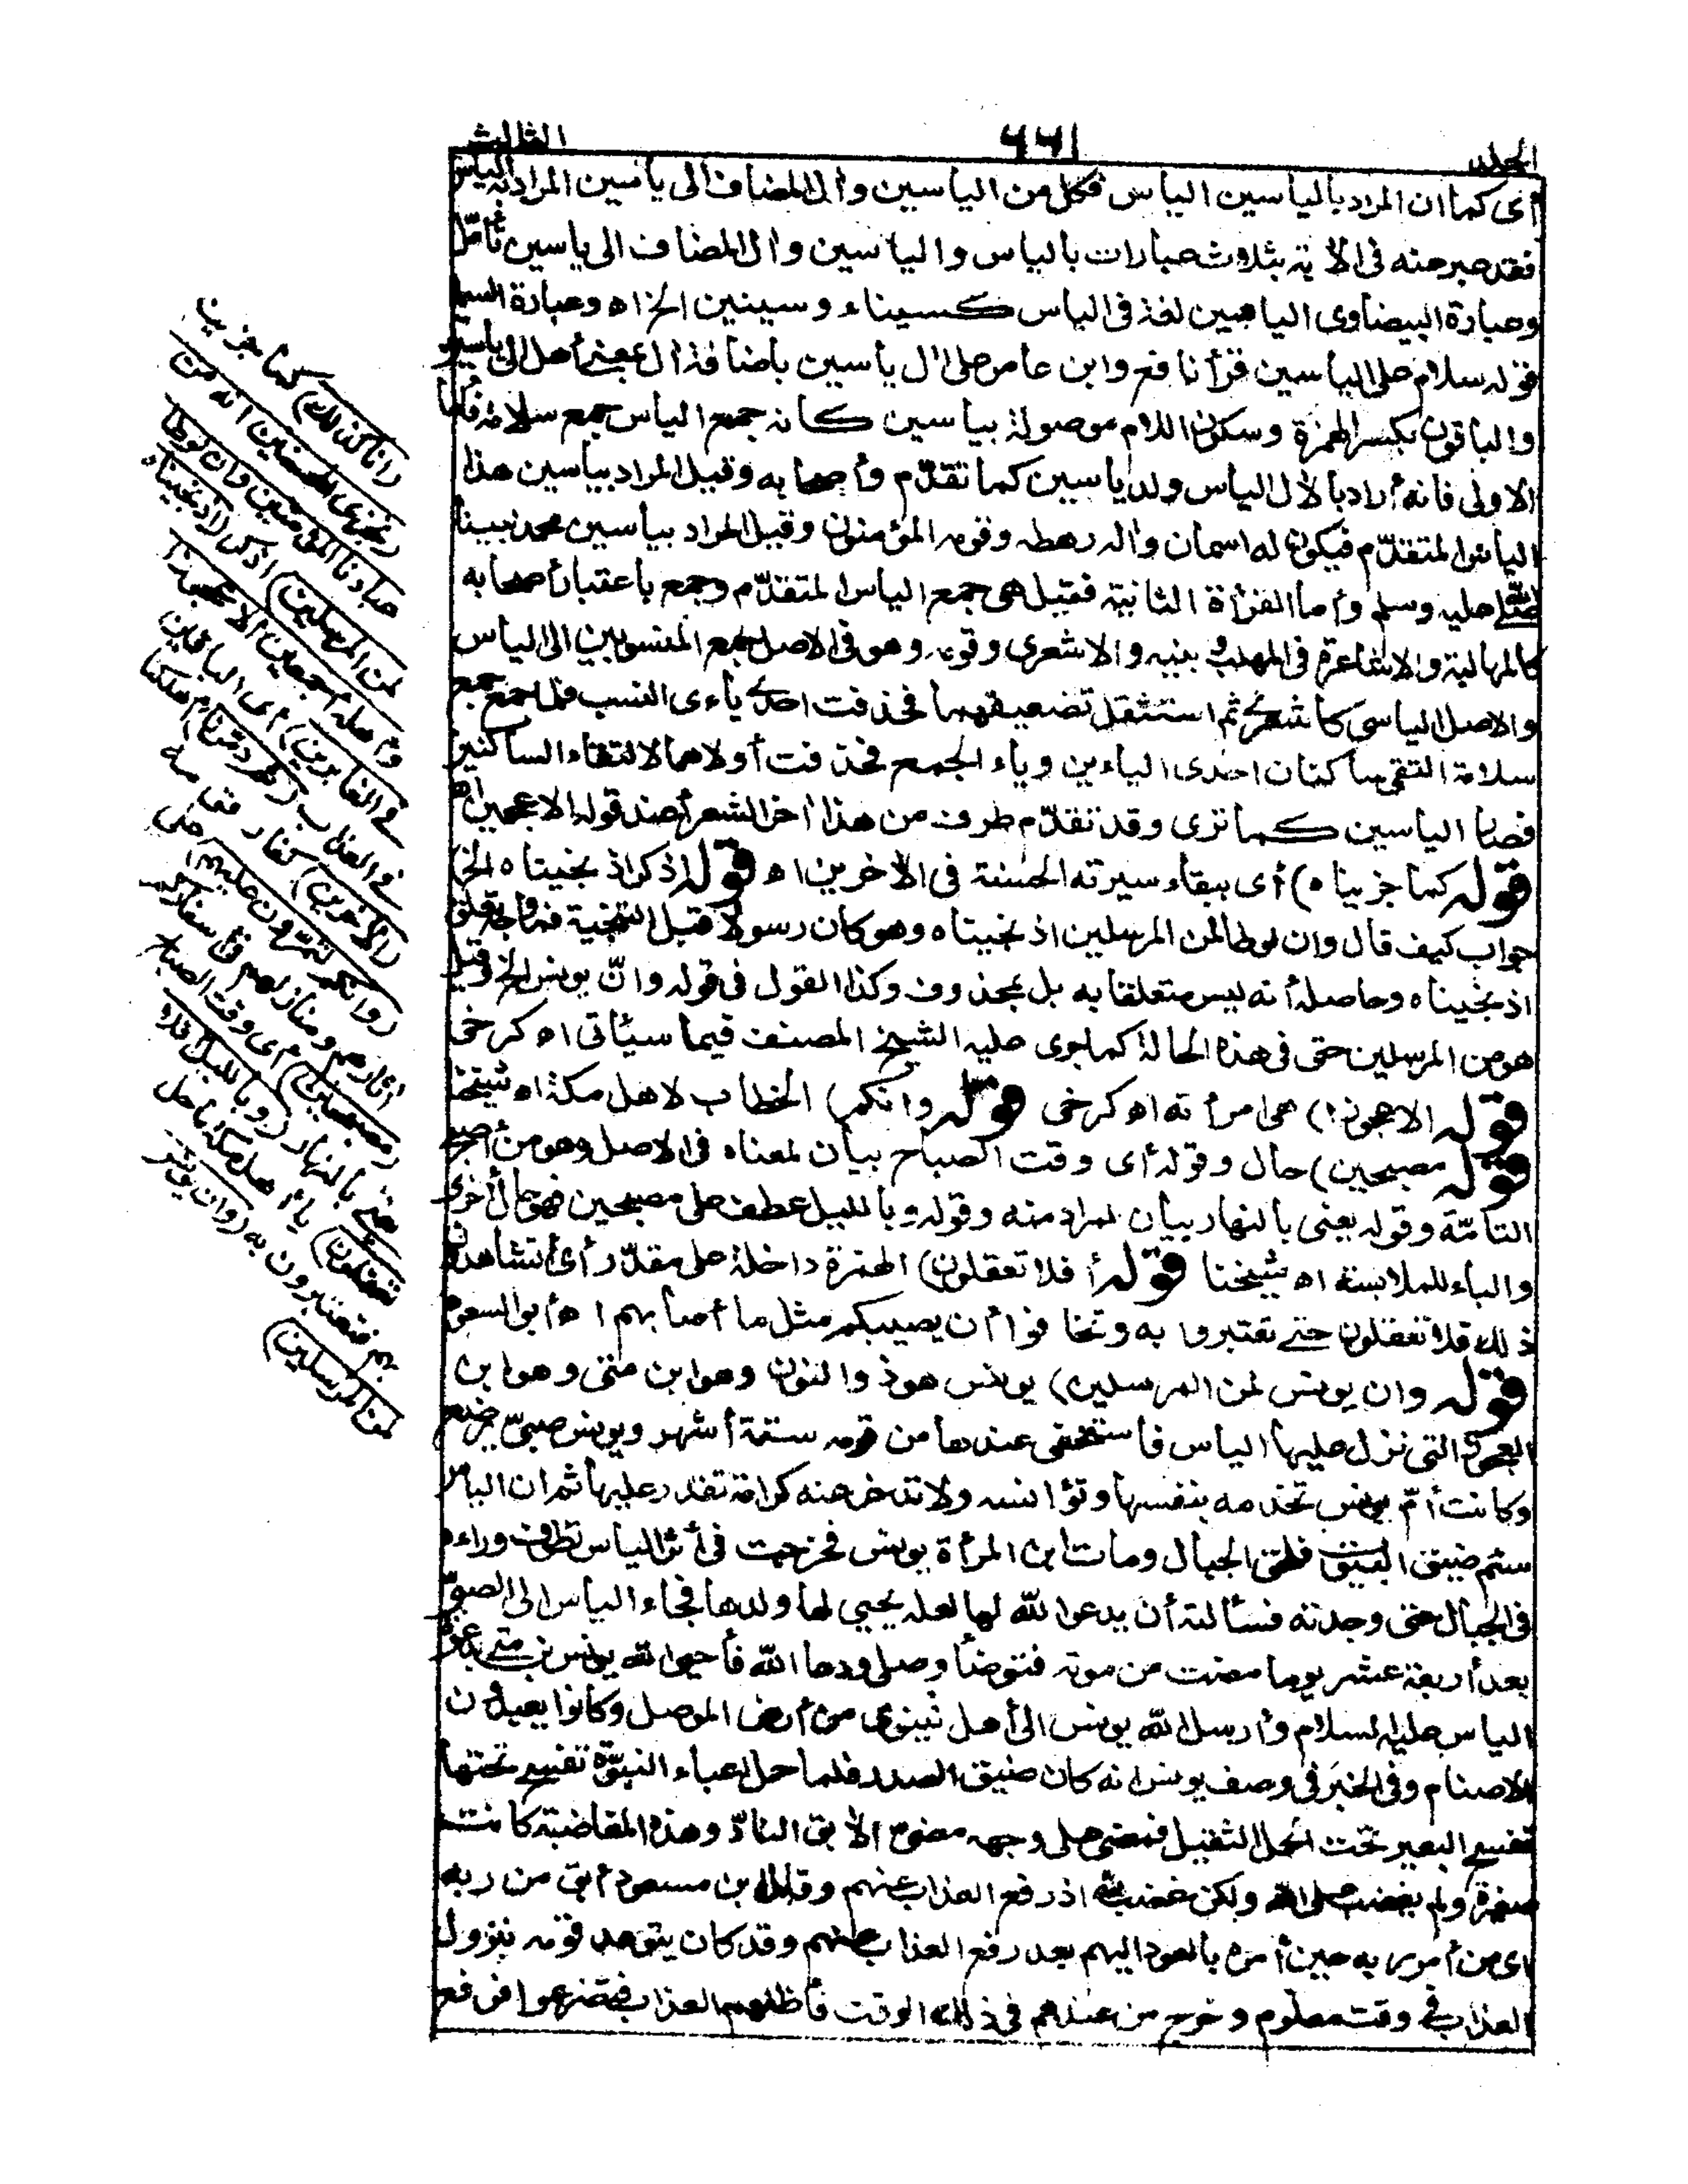 الجلد ٦٦١ الثالث
أى كما ان المراد بالياسين الياس فكل من الياسين وال المضاف الى ياسين المراد به الياس
فقد عبر عنه فى الآية بثلاث عبارات بالياس والياسين وال المضاف الى ياسين تأمّل
وعبارة البيضاوى الياسين لغة فى الياس كسيناء وسينين الخ اه وعبارة السمين
قوله سلام على الياسين قرأ نافع وابن عامر على آل ياسين باضافة آل بمعنى أهل الى ياسين
والباقون بكسر الهمزة وسكون اللام موصولة بياسين كانه جمع الياس جمع سلامة فأما
الاولى فانه أراد بالآل الياس ولد ياسين كما تقدّم وأصحابه وقيل المراد بياسين هذا
الياس المتقدّم فيكون له اسمان وآله رهطه وقومه المؤمنون وقيل المراد بياسين محمد نبينا
صلى الله عليه وسلم وأما القرأة الثانية فقيل هى جمع الياس المتقدّم وجمع باعتبار أصحابه
كالمهالبة والاشاعرة فى المهلب وبنيه والاشعرى وقومه وهو فى الاصل جمع المنسوبين الى الياس
والاصل الياسى كأشعرى ثم استثقل تضعيفهما فحذفت احدى ياءى النسب فلما جمع جمع
سلامة التقى ساكنان احدى الياءين وياء الجمع فحذفت أولاهما لالتقاء الساكنين
فصار الياسين كما ترى وقد تقدّم طرف من هذا آخر الشعرأ عند قوله الاعجمين اه
قوله كما جزيناه) أى ببقاء سيرته الحسنة فى الآخرين اه قوله اذكر اذ نجيناه الخ)
جواب كيف قال وان لوطا لمن المرسلين اذ نجيناه وهو كان رسولا قبل التنجية فما وجه تعلق
اذ نجيناه وحاصله أنه ليس متعلقا به بل بمحذوف وكذا القول فى قوله وانّ يونس الخ وقيل
هو من المرسلين حتى فى هذه الحالة كما جرى عليه الشيخ المصنف فيما سيأتى اه كرخى
قوله الا عجوزا) هى امرأته اه كرخى قوله وانكم) الخطاب لاهل مكة اه شيخنا
قوله مصبحين) حال وقوله أى وقت الصباح بيان لمعناه فى الاصل وهو من أصبح
التامّة وقوله يعنى بالنهار بيان لمراد منه وقوله وبالليل عطف على مصبحين فهو حال أخرى
والباء للملابسة اه شيخنا قوله أفلا تعقلون) الهمزة داخلة على مقدّر أى أتشاهدون
ذلك فلا تعقلون حتى تعتبروا به وتخافوا أن يصيبكم مثل ما أصابهم اه أبو السعود
قوله وان يونس لمن المرسلين) يونس هو ذو النون وهو ابن متى وهو ابن
العجوز التى نزل عليها الياس فاستخفى عندها من قومه ستة أشهر ويونس صبىّ يرضع
وكانت أمّ يونس تخدمه بنفسها وتؤانسه ولا تدخر عنه كرامة تقدر عليها ثم ان الياس
سئم ضيق البيوت فلحق الجبال ومات ابن المرأة يونس فخرجت فى أثر الياس تطوف وراءه
فى الجبال حتى وجدته فسألته أن يدعو الله لها لعله يحيى لها ولدها فجاء الياس الى الصبىّ
بعد أربعة عشر يوما مضت من موته فتوضأ وصلى ودعا الله فأحيى الله يونس بن متى بدعوة
الياس عليه السلام وأرسل الله يونس الى أهل نينوى من أرض الموصل وكانوا يعبدون
الاصنام وفى الخبر فى وصف يونس انه كان ضيق الصدر فلما حمل أعباء النبوّة تفسخ تحتها
تفسخ البعير تحت الحمل الثقيل فمضى على وجهه مضىّ الآبق النادّ وهذه المغاضبة كانت
صغيرة ولم يغضب على الله ولكن غضب لله اذ رفع العذاب عنهم وقال ابن مسعود أبق من ربه
اى من أمر ربه حين أمره بالعود اليهم بعد رفع العذاب عنهم وقد كان يتوعد قومه بنزول
العذاب فى وقت معلوم وخرج من عندهم فى ذلك الوقت فأظلهم العذاب فتضرعوا فرفع
(انا كذلك) كما جزيناه
(نجزى المحسنين انه من
عبادنا المؤمنين وان لوطا
لمن المرسلين) اذكر (اذ نجيناه
وأهله أجمعين الا عجوزا
فى الغابرين) أى الباقين
فى العذاب (ثم دمرنا) أهلكنا
(الآخرين) كفار قومه
(وانكم لتمرون عليهم) على
آثارهم ومنازلهم فى أسفاركم
(مصبحين) أى وقت الصباح
يعنى بالنهار (وبالليل أفلا
تعقلون) يا أهل مكة ما حل
بهم فتعتبرون به (وان يونس
لمن المرسلين)